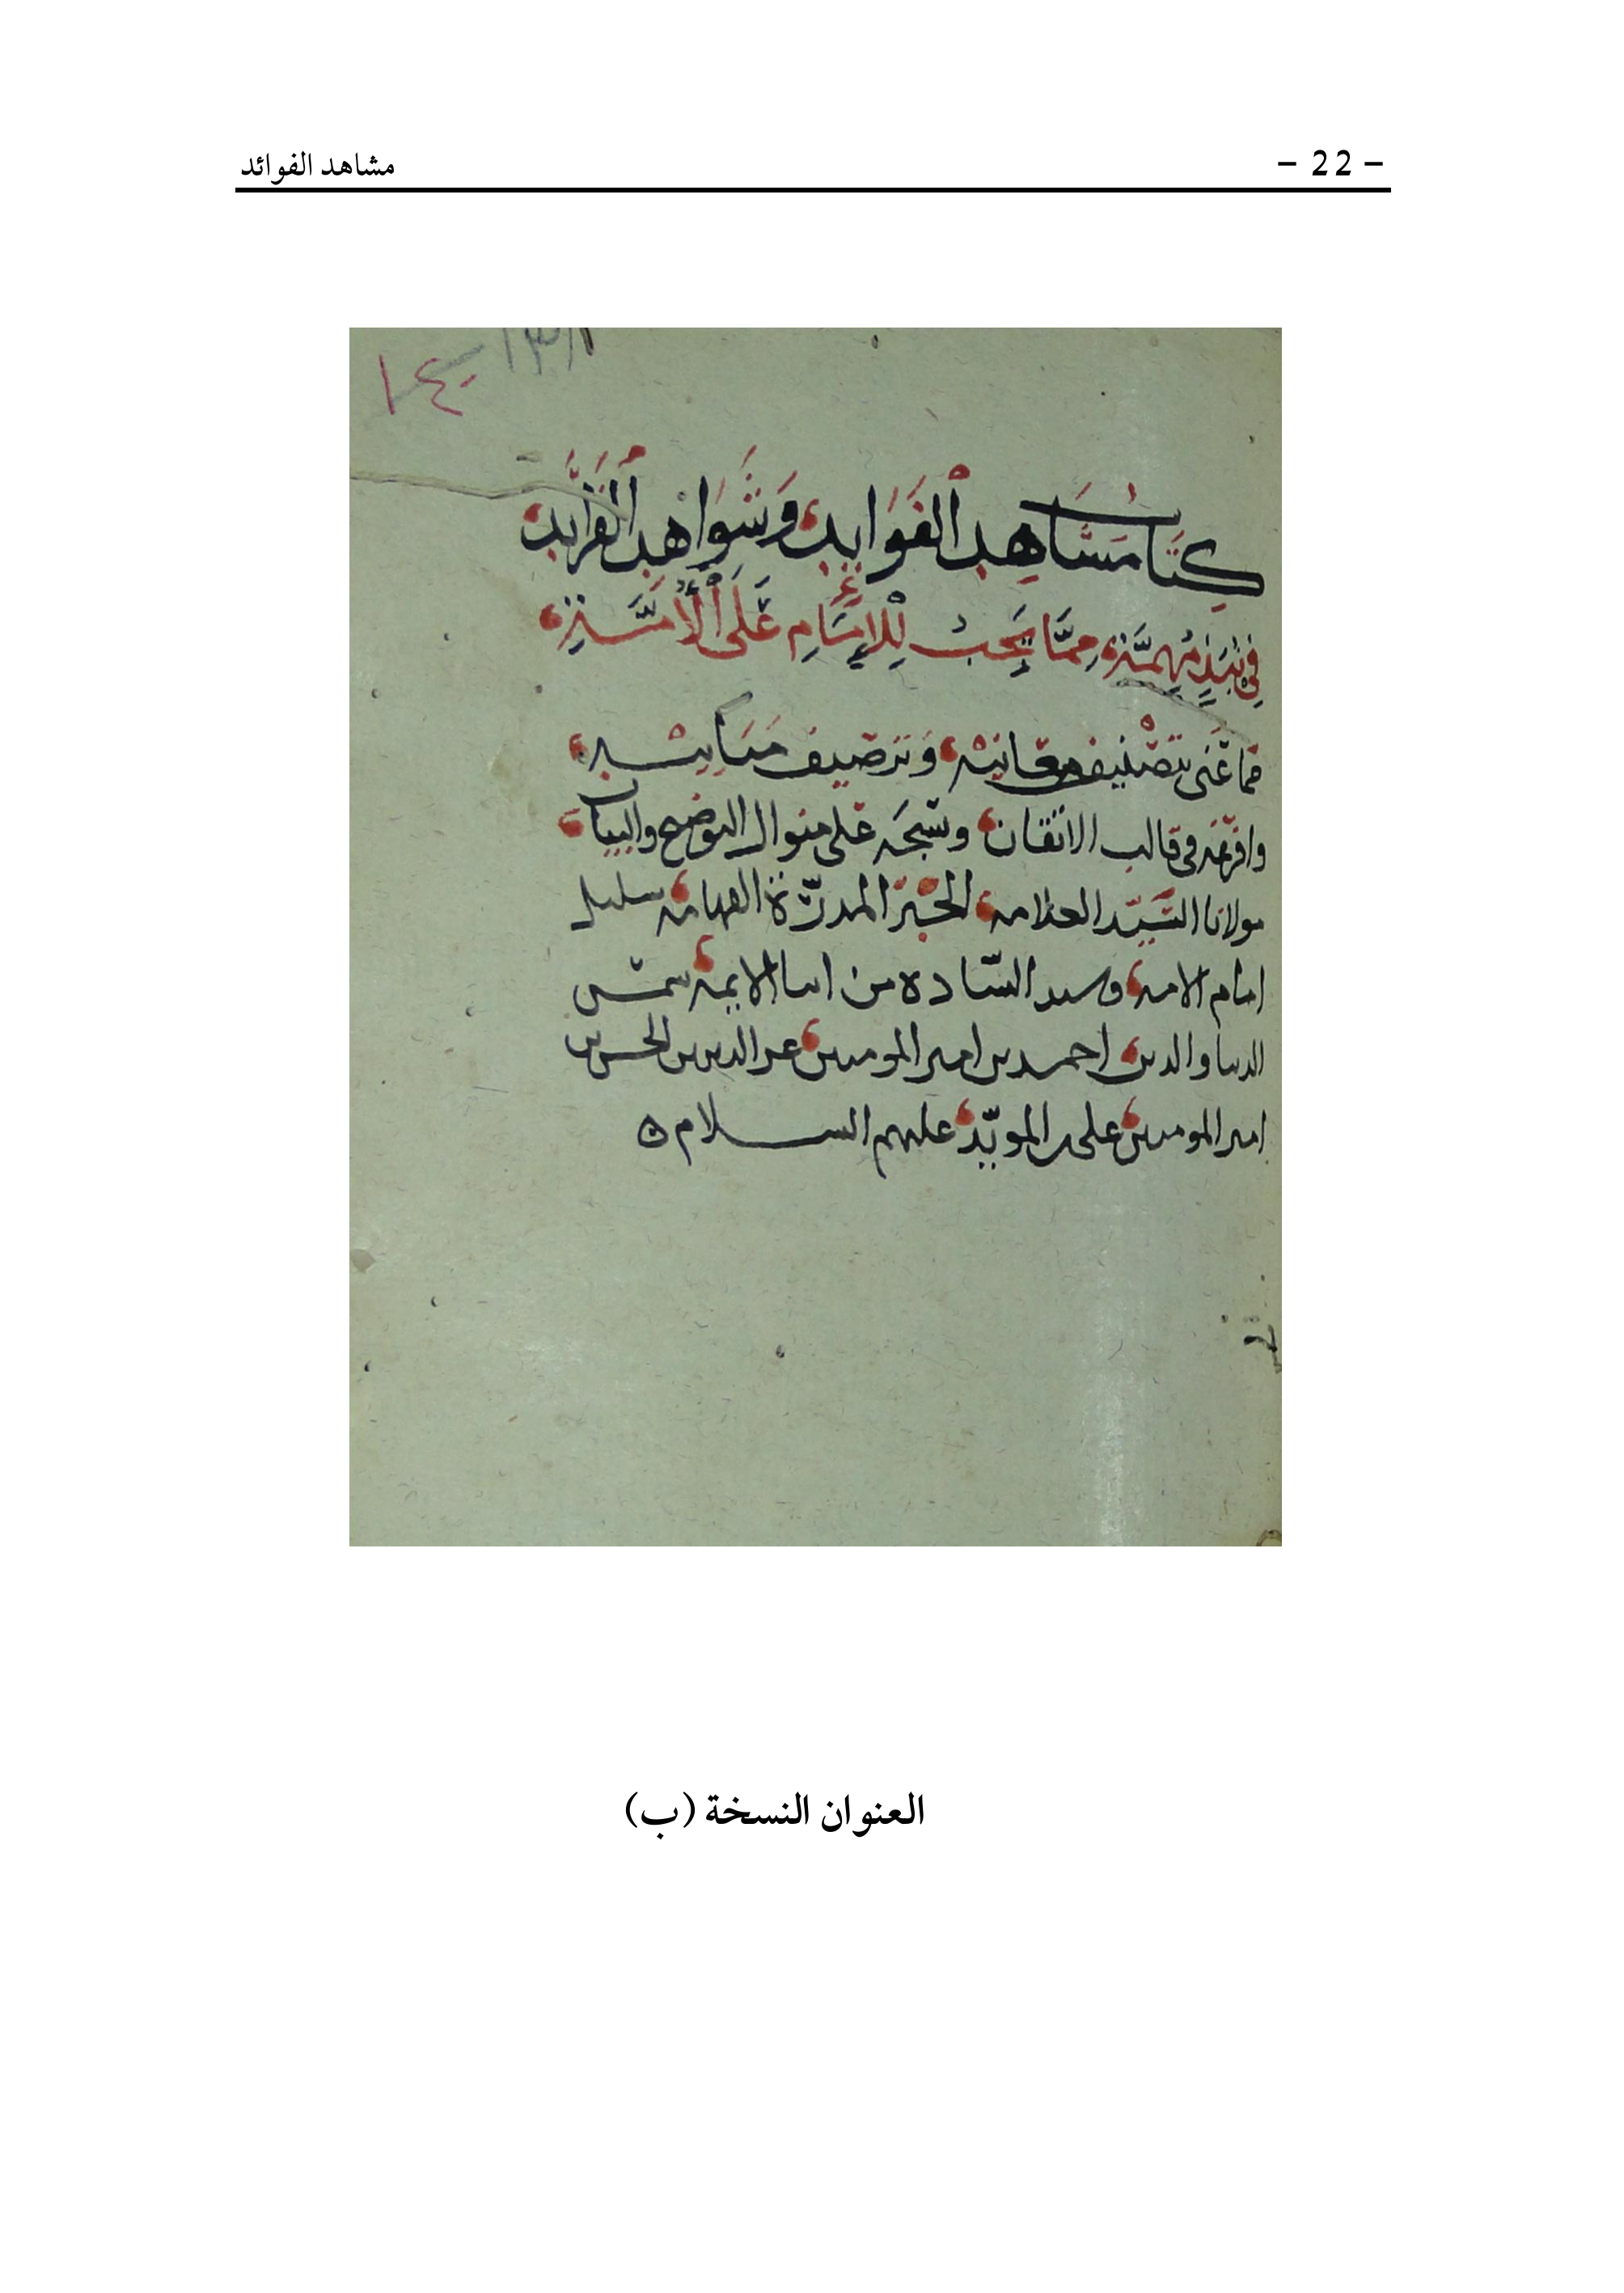 مشاهد الفوائد
- 22 -
كتاب مشاهد الفوايد وشواهد الفرايد
في نبذ مهمة مما يجب للإمام على الأمة
مما عنى بتصنيف معانيه وترصيف مبانيه
وافرغه في قالب الاتقان ونسجه على منوال التوضيح والبيان
مولانا السيد العلامة الحبر المدرة الفهامه سليل
امام الامه وسيد السادة من ابنا الايمه شمس
الدنيا والدين احمد بن امير المومنين عز الدين بن الحسن بن
امير المومنين على بن المويد عليهم السلام
العنوان النسخة (ب)